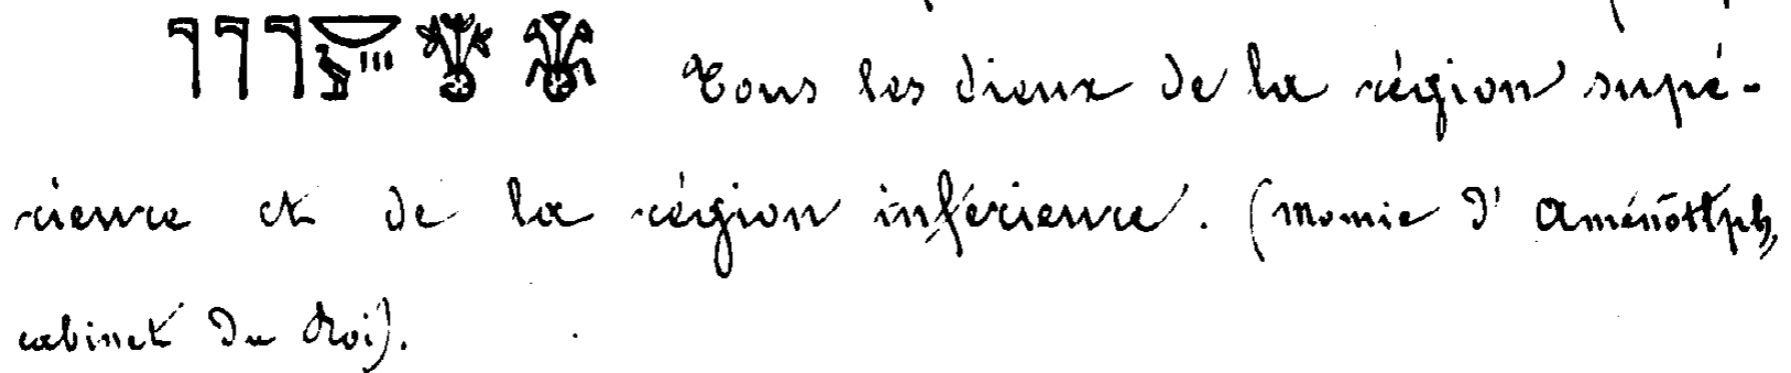 𓊹𓊹𓊹𓎟𓅱𓏥 Tous les dieux de la région supé-
rieure et de la région inférieure. (Momie d'Aménôthph,
cabinet du Roi).